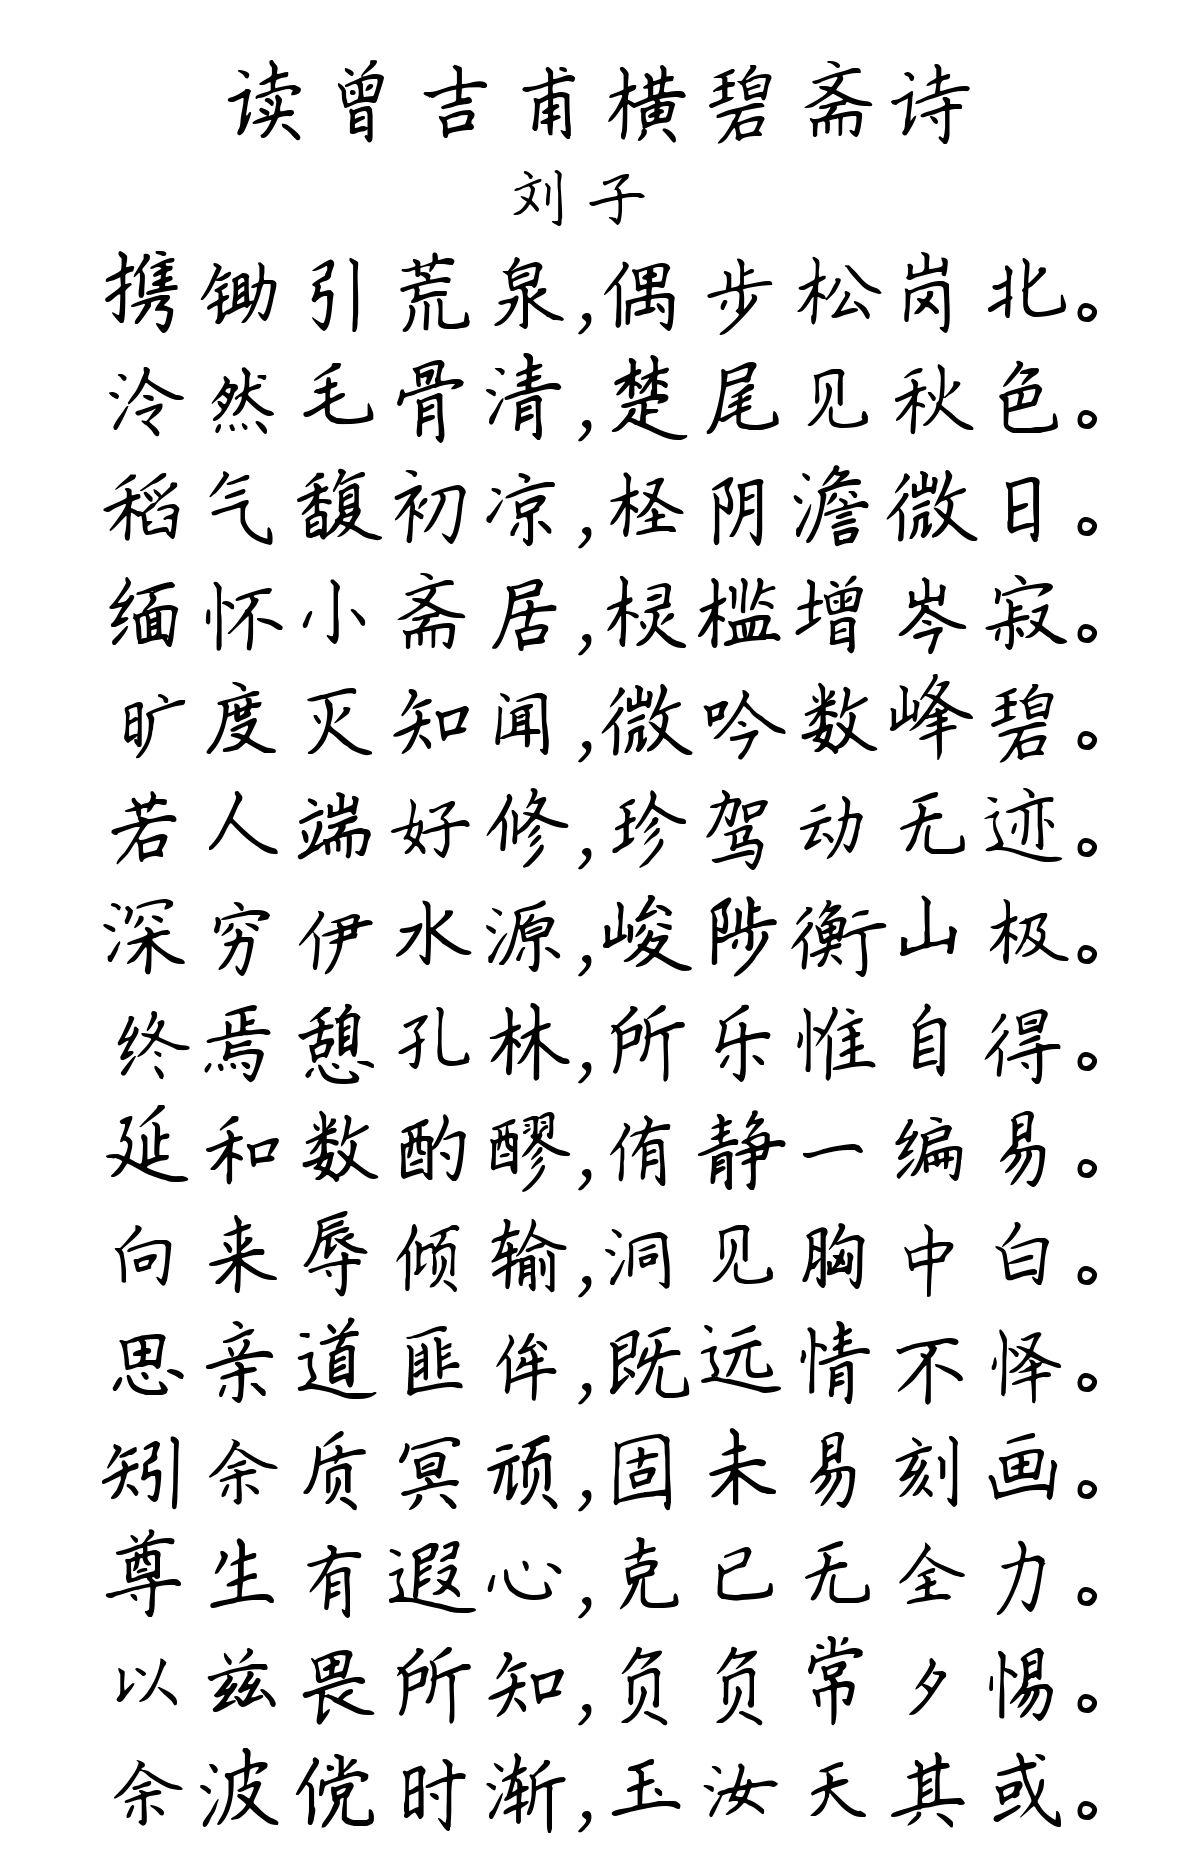 读曾吉甫横碧斋诗
刘子
携锄引荒泉,偶步松岗北。
泠然毛骨清,楚尾见秋色。
稻气馥初凉,柽阴澹微日。
缅怀小斋居,棂槛增岑寂。
旷度灭知闻,微吟数峰碧。
若人端好修,珍驾动无迹。
深穷伊水源,峻陟衡山极。
终焉憩孔林,所乐惟自得。
延和数酌醪,侑静一编易。
向来辱倾输,洞见胸中白。
思亲道匪侔,既远情不怿。
矧余质冥顽,固未易刻画。
尊生有遐心,克己无全力。
以兹畏所知,负负常夕惕。
余波傥时渐,玉汝天其或。